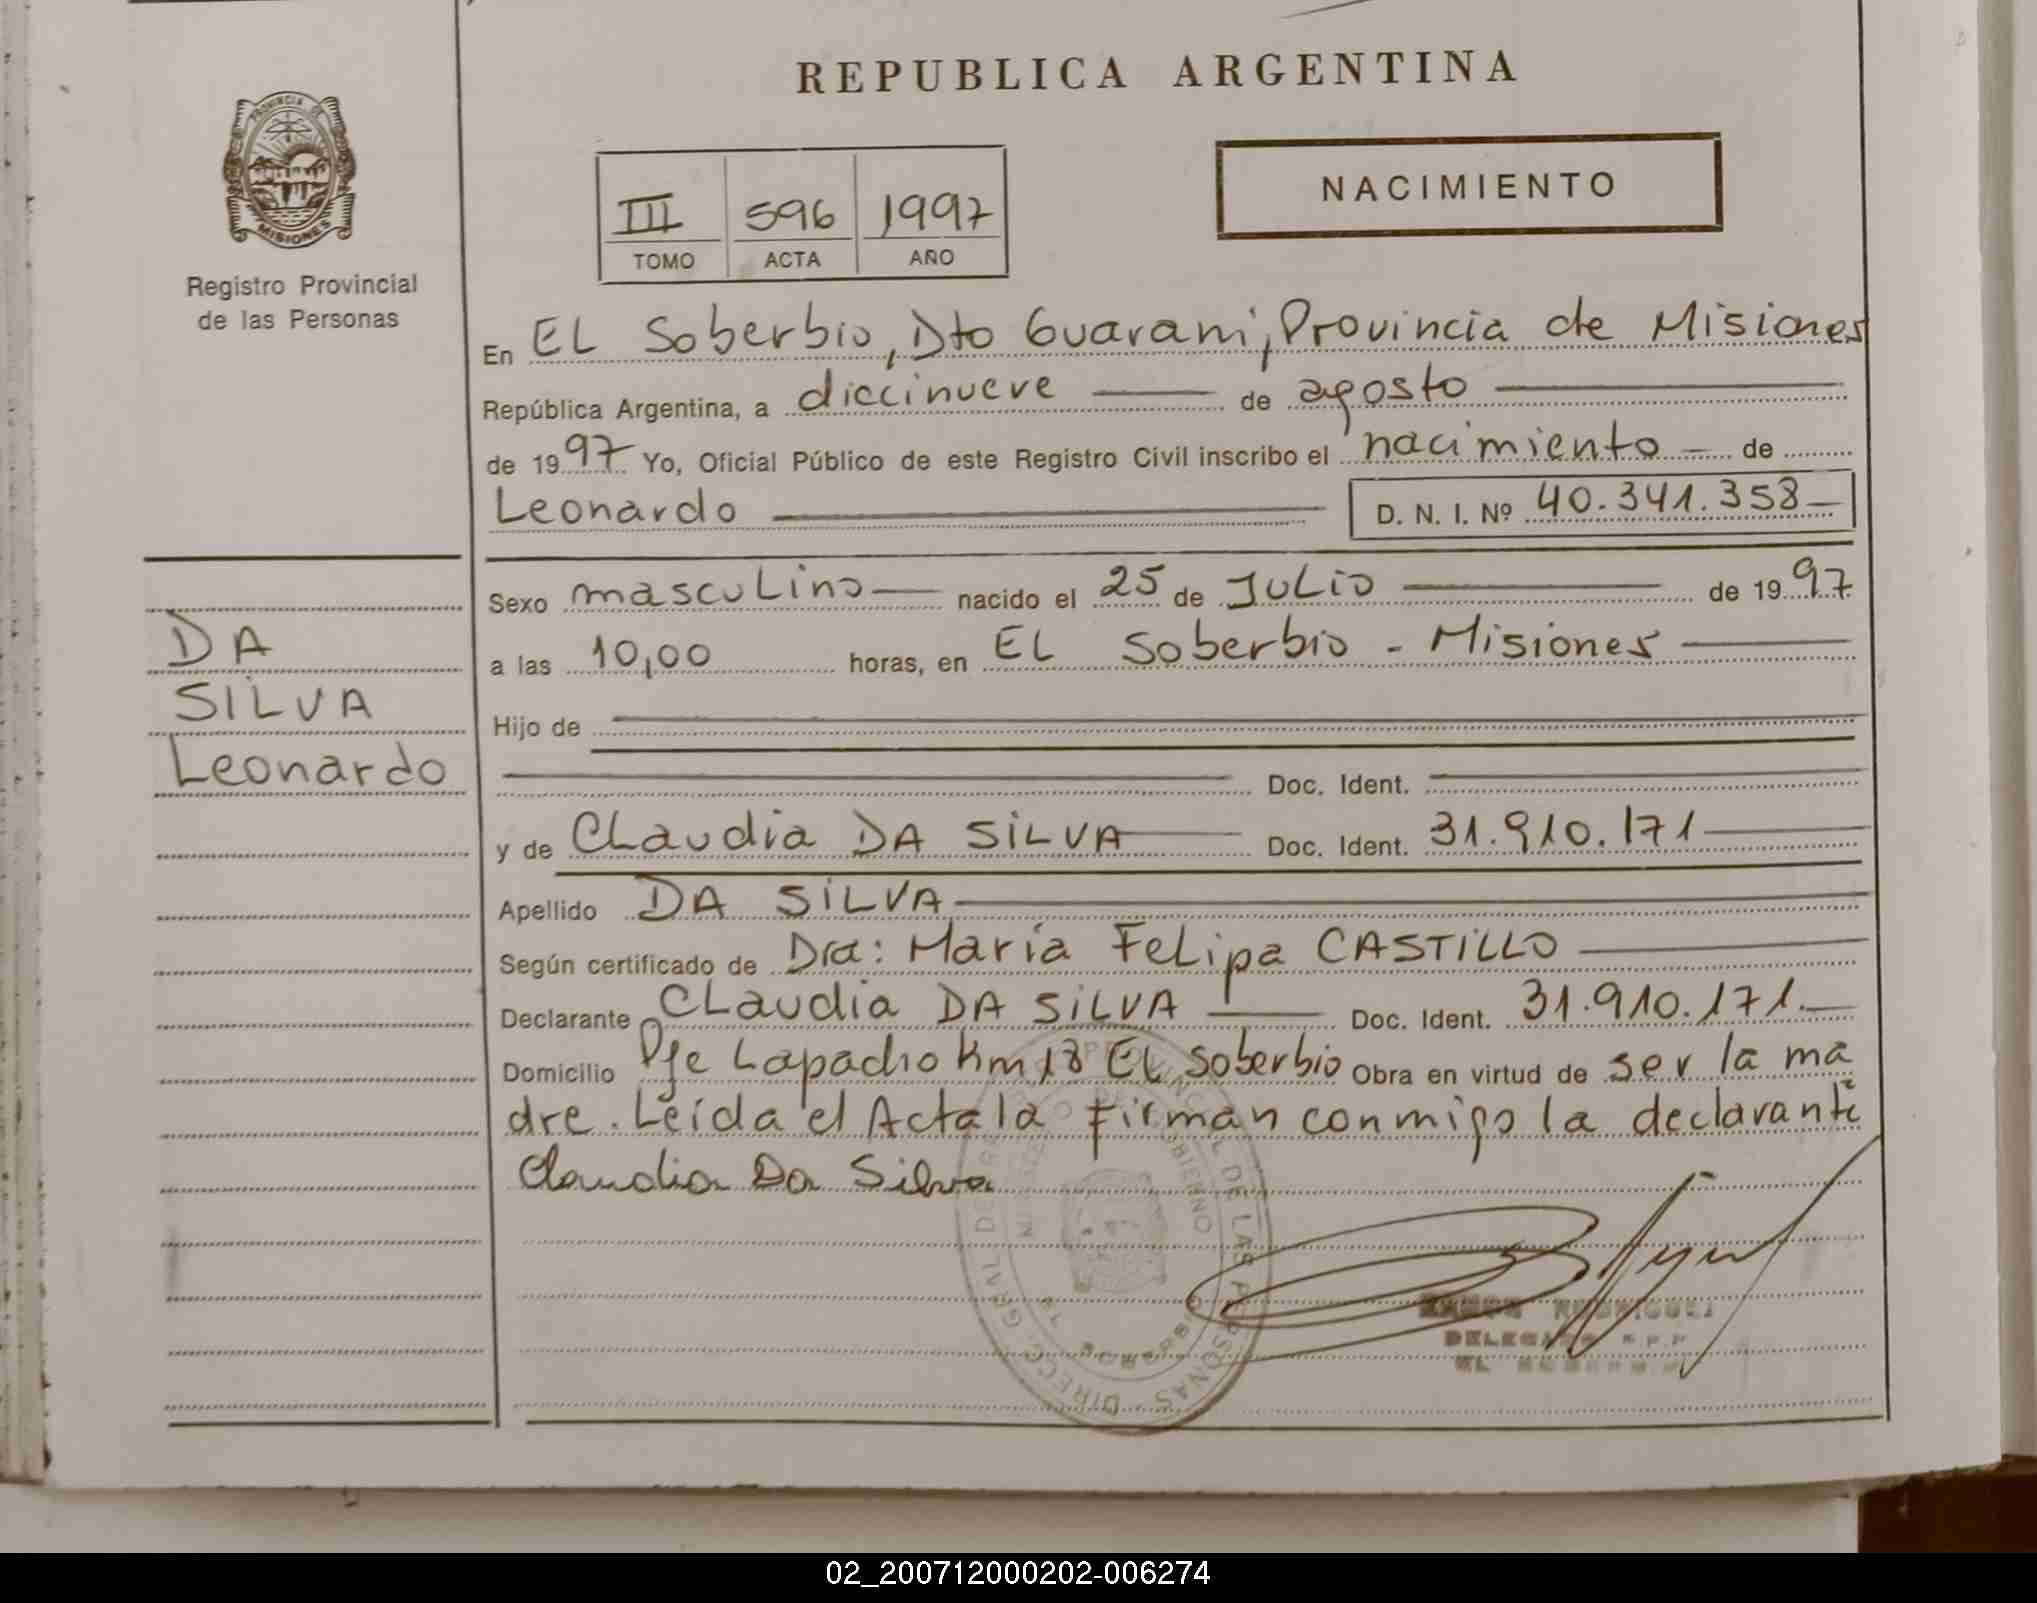 REPUBLICA ARGENTINA
PROVINCIA DE
MISIONES
Registro Provincial
de las Personas
III 596 1997
TOMO ACTA AÑO
NACIMIENTO
En EL Soberbio, Dto Guarani, Provincia de Misiones
República Argentina, a diecinueve de agosto
de 1997 Yo, Oficial Público de este Registro Civil inscribo el nacimiento de
Leonardo D. N. I. Nº 40.341.358
DA
SILVA
Leonardo
Sexo masculino nacido el 25 de JULIO de 1997
a las 10,00 horas, en EL Soberbio - Misiones
Hijo de
Doc. Ident.
y de CLaudia DA SILVA Doc. Ident. 31.910.171
Apellido DA SILVA
Según certificado de Dra: María FeLipa CASTILLO
Declarante CLaudia DA SILVA Doc. Ident. 31.910.171.
Domicilio Pje Lapacho Km 18 EL Soberbio Obra en virtud de ser la ma
dre. Leída el Acta la firman conmigo la declarante
Claudia Da Silva
DIRECC. GRAL. DE REG. PROVINCIAL DE LAS PERSONAS
RODRIGUEZ
DELEGADO R.P.P.
EL SOBERBIO
02_200712000202-006274